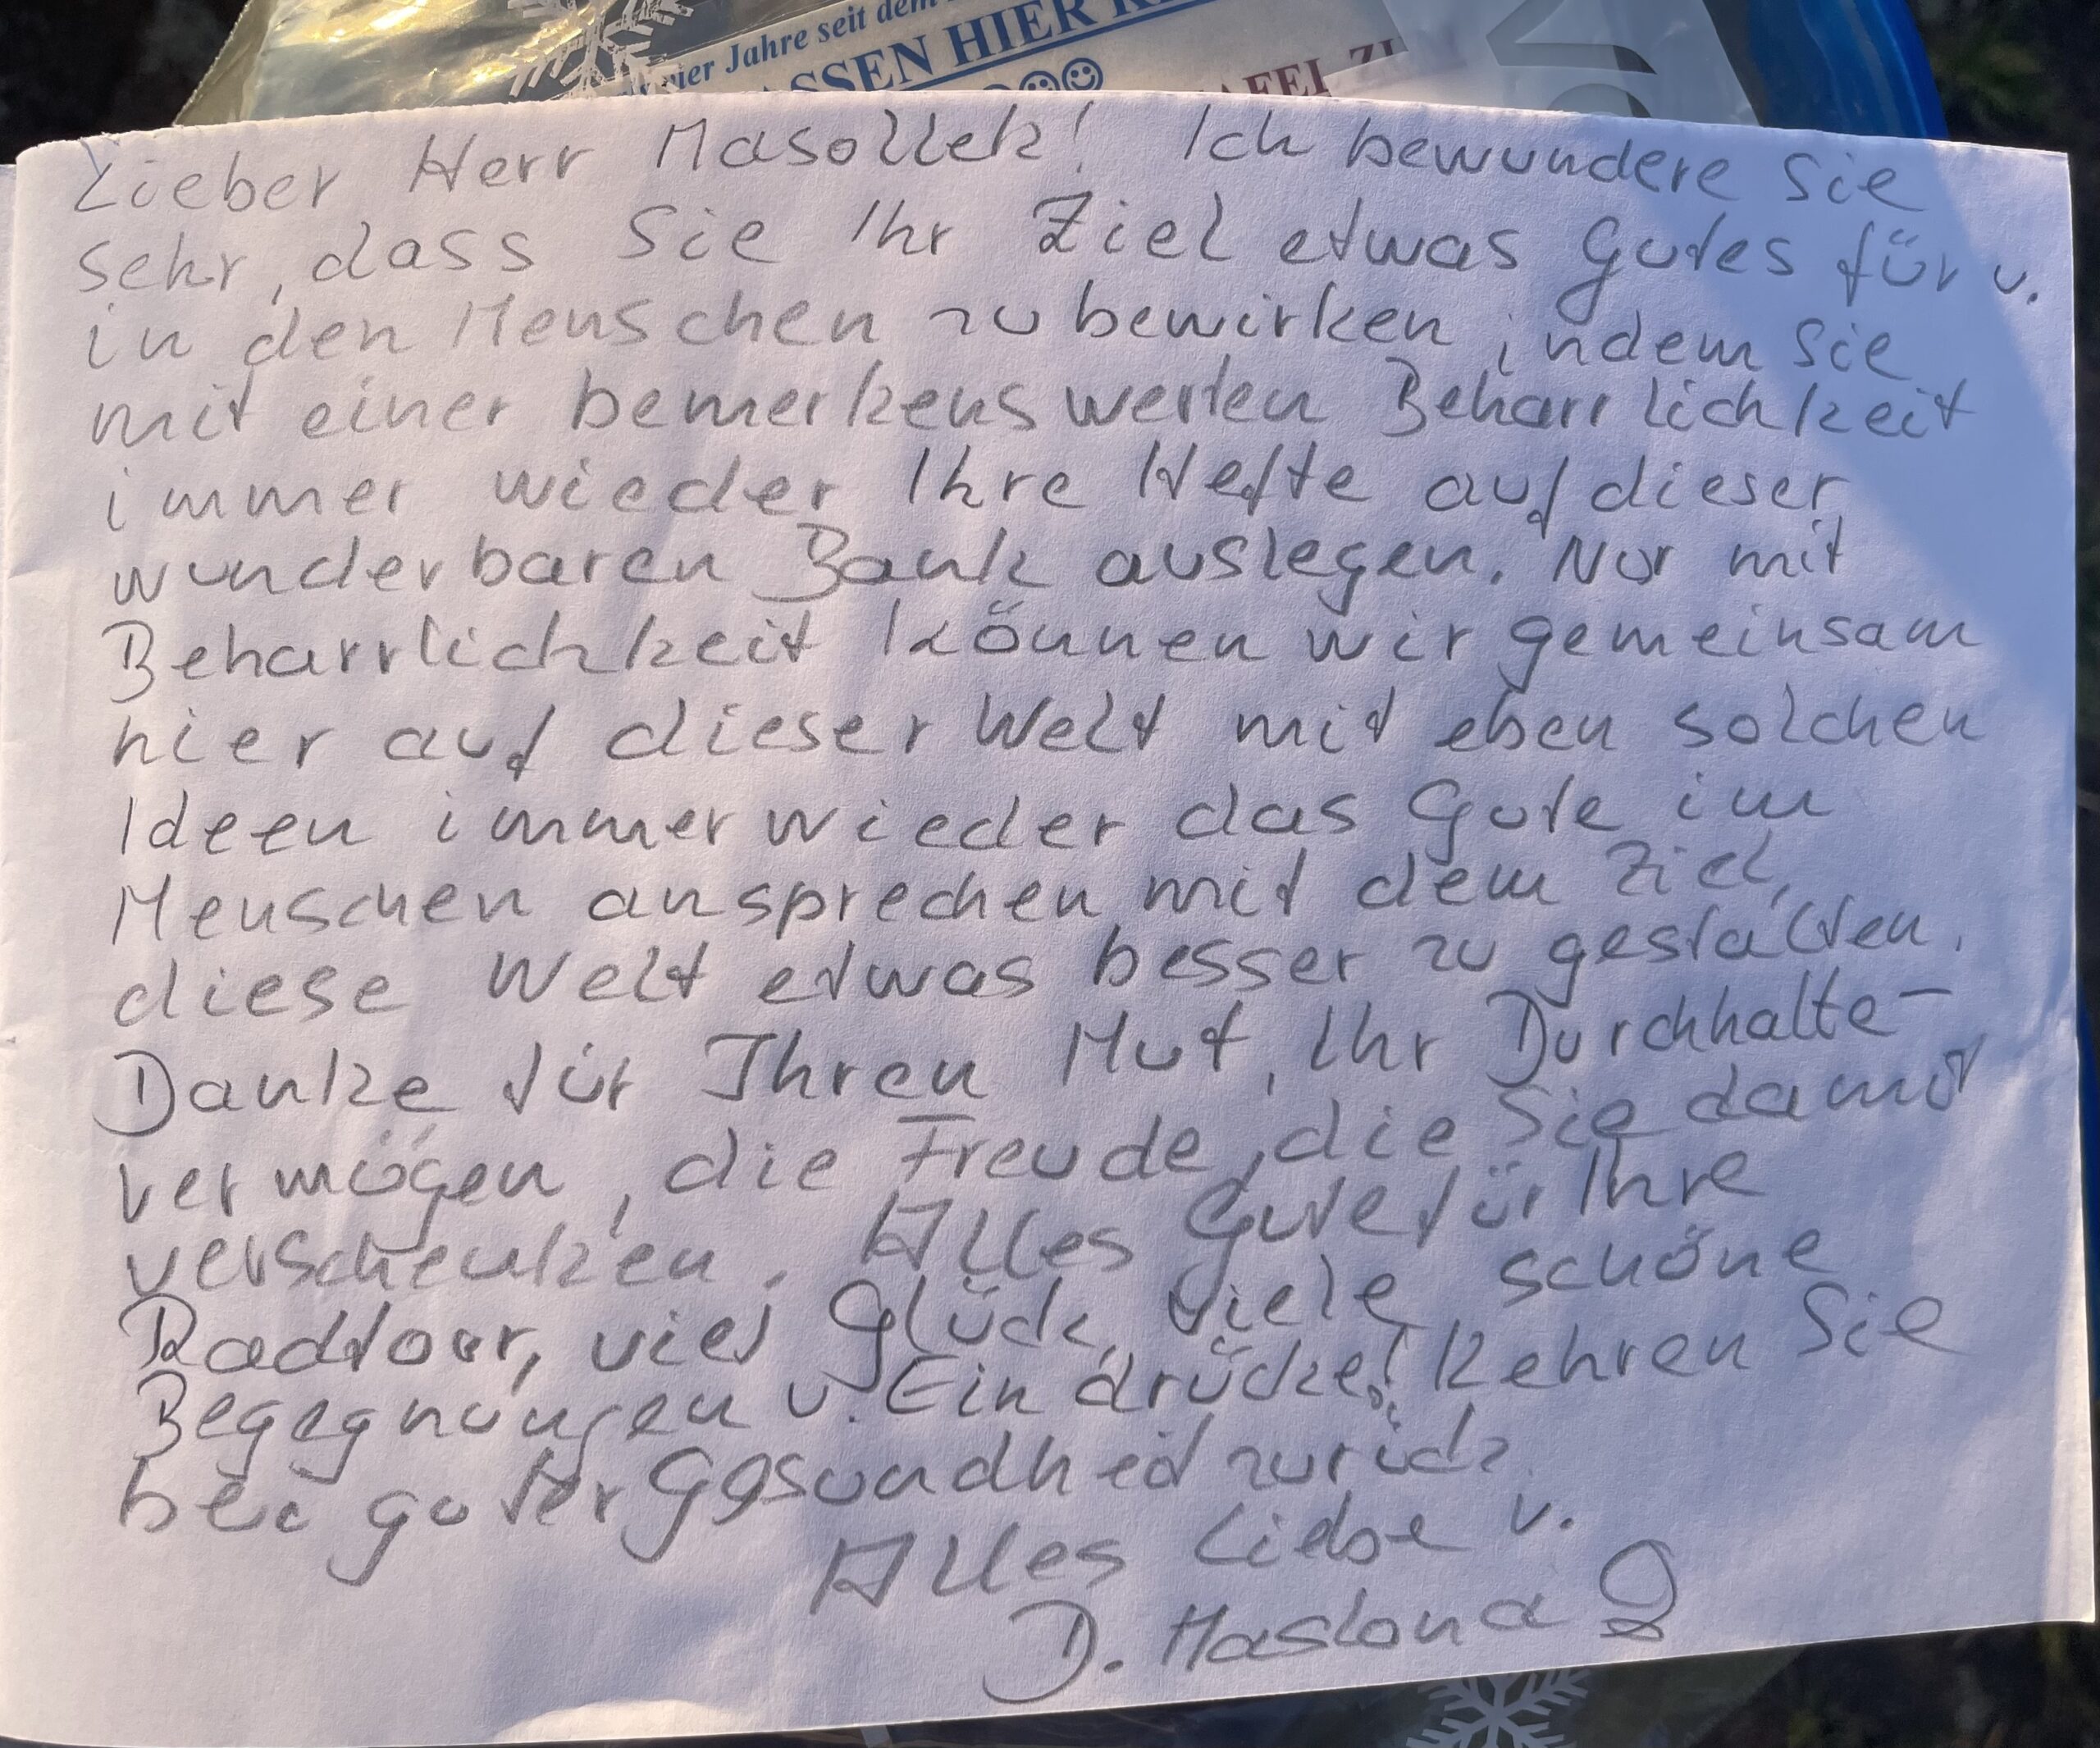 vier Jahre seit dem
SSEN HIER
AFEL ZU
Lieber Herr Masollek! Ich bewundere Sie
sehr, dass Sie Ihr Ziel etwas Gutes für u.
in den Menschen zu bewirken, indem Sie
mit einer bemerkenswerten Beharrlichkeit
immer wieder Ihre Hefte auf dieser
wunderbaren Bank auslegen. Nur mit
Beharrlichkeit können wir gemeinsam
hier auf dieser Welt mit eben solchen
Ideen immer wieder das Gute im
Menschen ansprechen mit dem Ziel,
diese Welt etwas besser zu gestalten.
Danke für Ihren Mut, Ihr Durchhalte-
vermögen, die Freude, die Sie damit
verschenken. Alles Gute für Ihre
Radtour, viel Glück, viele schöne
Begegnungen u. Eindrücke! Kehren Sie
bei guter Gesundheit zurück.
Alles Liebe v.
D. Maslona